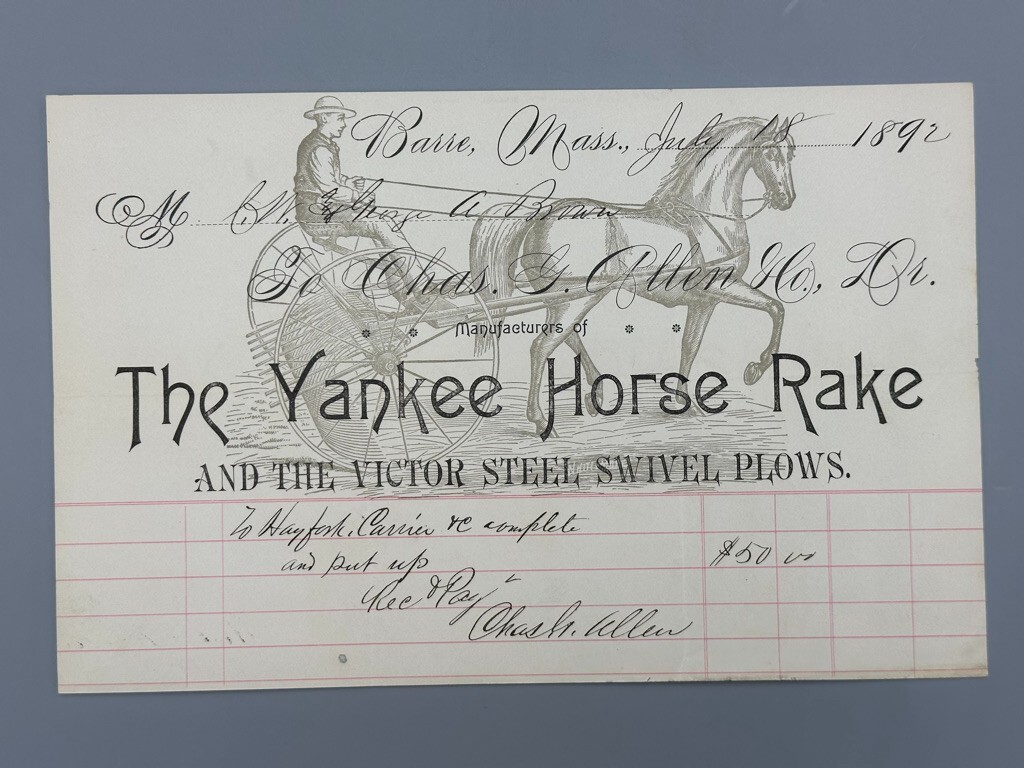 Barre, Mass., July 18 1892
M C. W. & George A. Brown
To Chas. G. Allen Co., Dr.
Manufacturers of
The Yankee Horse Rake
AND THE VICTOR STEEL SWIVEL PLOWS.
To Hayfork, Carrier &c complete
and put up $50 00
Rec'd Pay't
Chas G. Allen